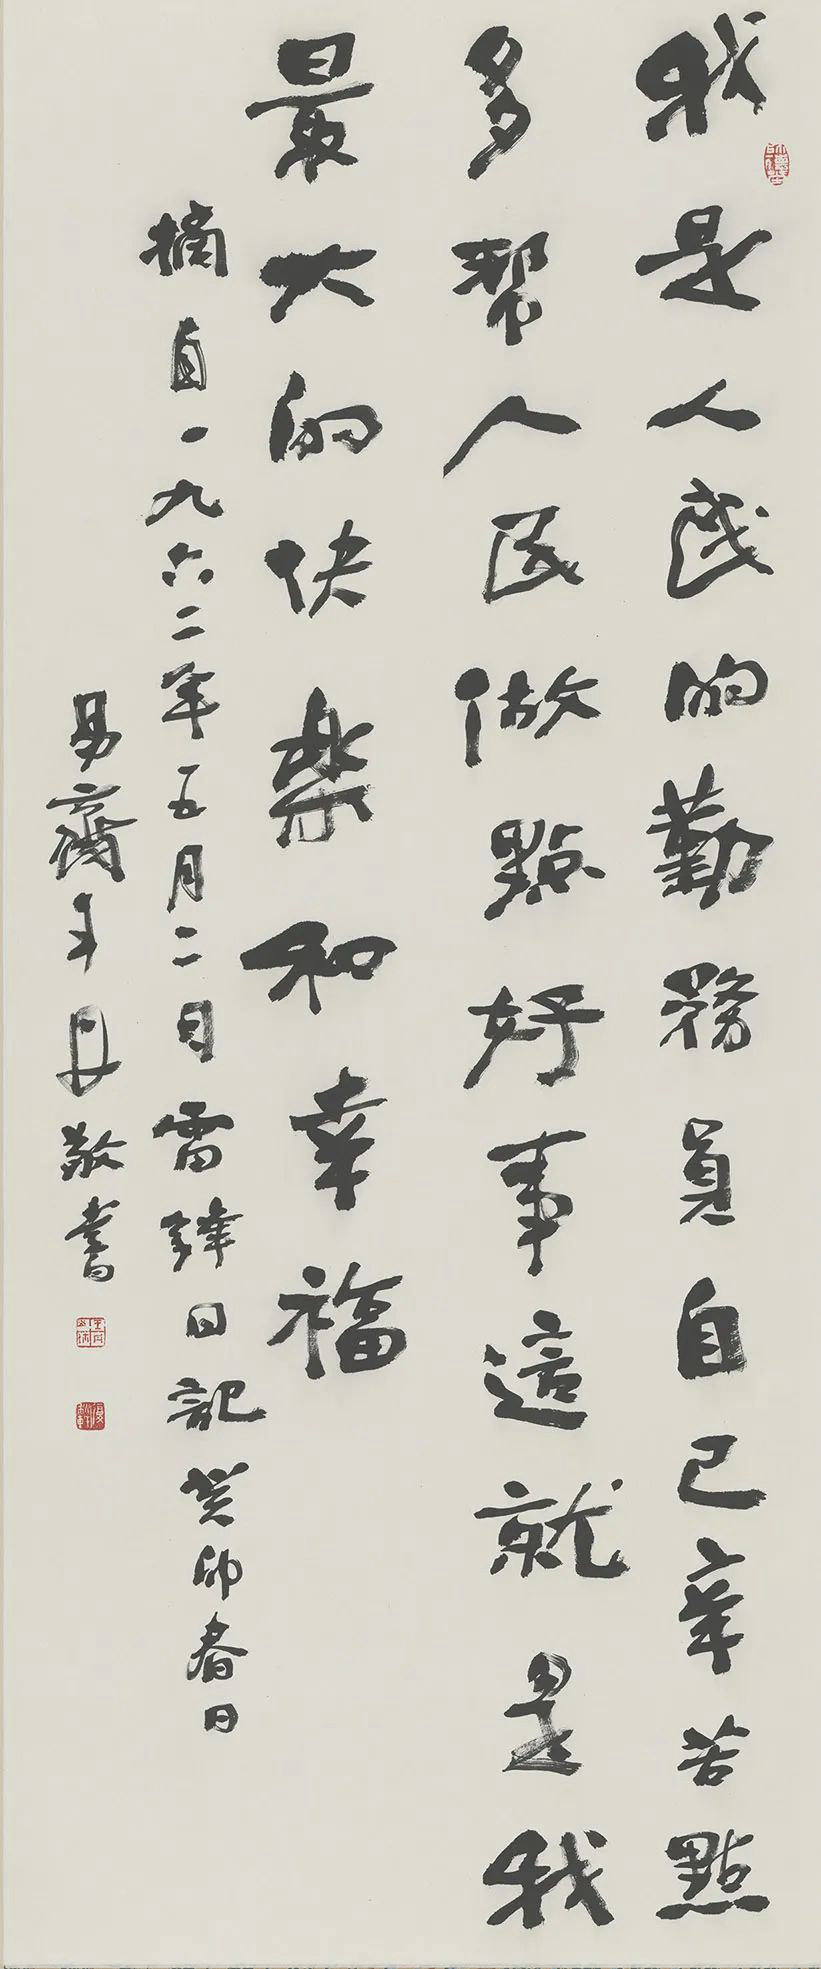 我是人民的勤務員自己辛苦點
多帮人民做點好事這就是我
最大的快樂和幸福
摘自一九六二年五月二日雷鋒日記癸卯春日
易齋王丹敬書